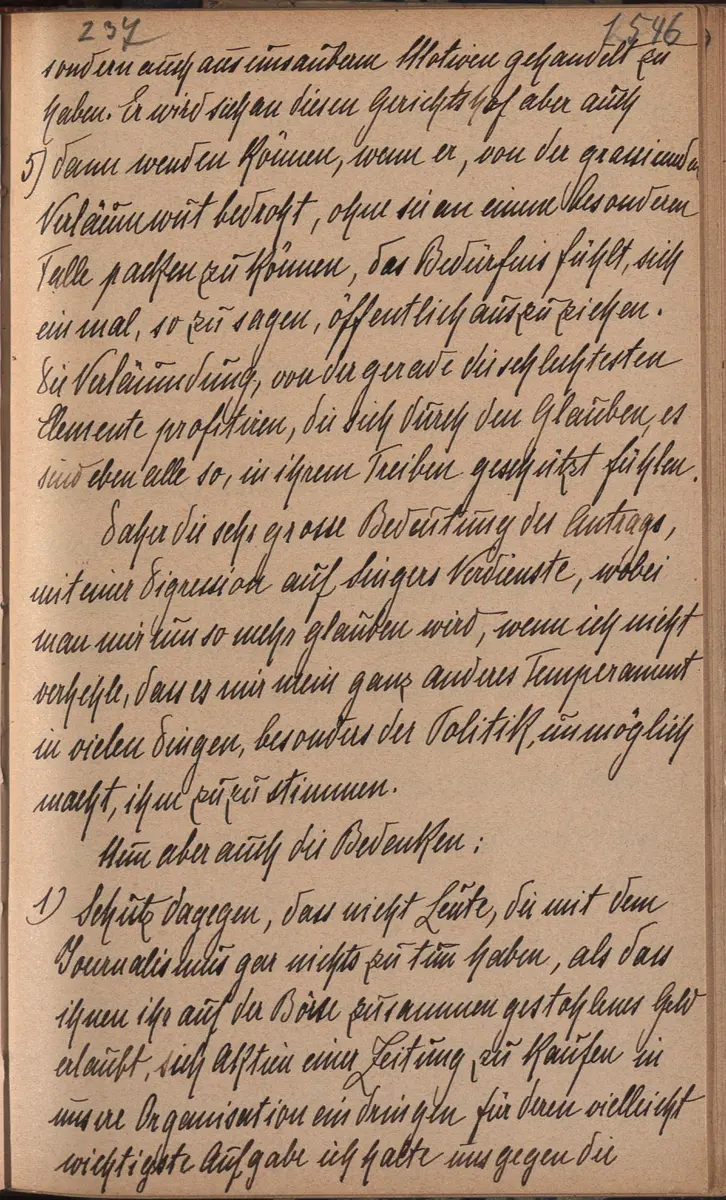 237 1546
sondern auch aus unsauberm Motiven gehandelt zu
haben. Er wird sich an diesen Gerichtshof aber auch
5) dann wenden können, wenn er, von der grassierenden
Verläumwut bedroht, ohne sie an einem besonderen
Falle packen zu können, das Bedürfnis fühlt, sich
einmal, so zu sagen, öffentlich auszuziehen.
Die Verläumdung, von der gerade die schlechtesten
Elemente profitiren, die sich durch den Glauben, es
sind eben alle so, in ihrem Treiben geschützt fühlen.
Daher die sehr grosse Bedeutung des Antrags,
mit einer Digression auf Singers Verdienste, wobei
man mir um so mehr glauben wird, wenn ich nicht
verhehle, dass es mir mein ganz anderes Temperament
in vielen Dingen, besonders der Politik, unmöglich
macht, ihm zuzustimmen.
Nun aber auch die Bedenken:
1) Schutz dagegen, dass nicht Leute, die mit dem
Journalismus gar nichts zu tun haben, als dass
ihnen ihr auf der Börse zusammengestohlenes Geld
erlaubt, sich Aktien einer Zeitung zu kaufen in
unsere Organisation eindringen für deren vielleicht
wichtigste Aufgabe ich halte uns gegen die